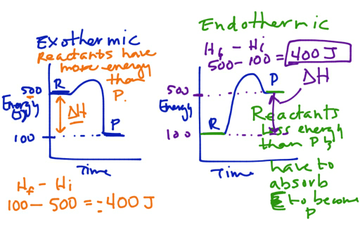 Exothermic
Reactants have
more energy
than
P.
R
500
Energy
(J)
ΔH
100
P
Time
Hf - Hi
100 - 500 = -400 J
Endothermic
Hf - Hi
500 - 100 = 400 J
ΔH
P
500
Energy
R
100
Time
Reactants
less energy
than P's
have to
absorb
E to become
P